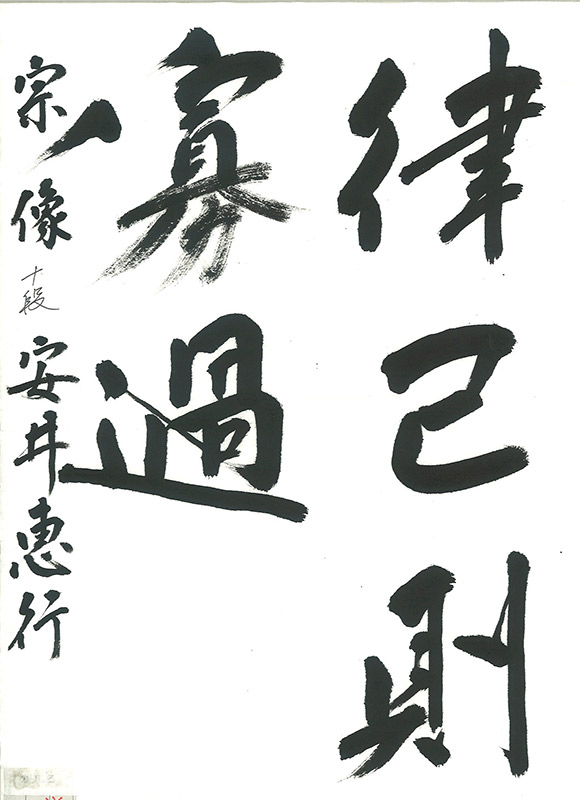 律己則
寡過
宗像 十段 安井惠行